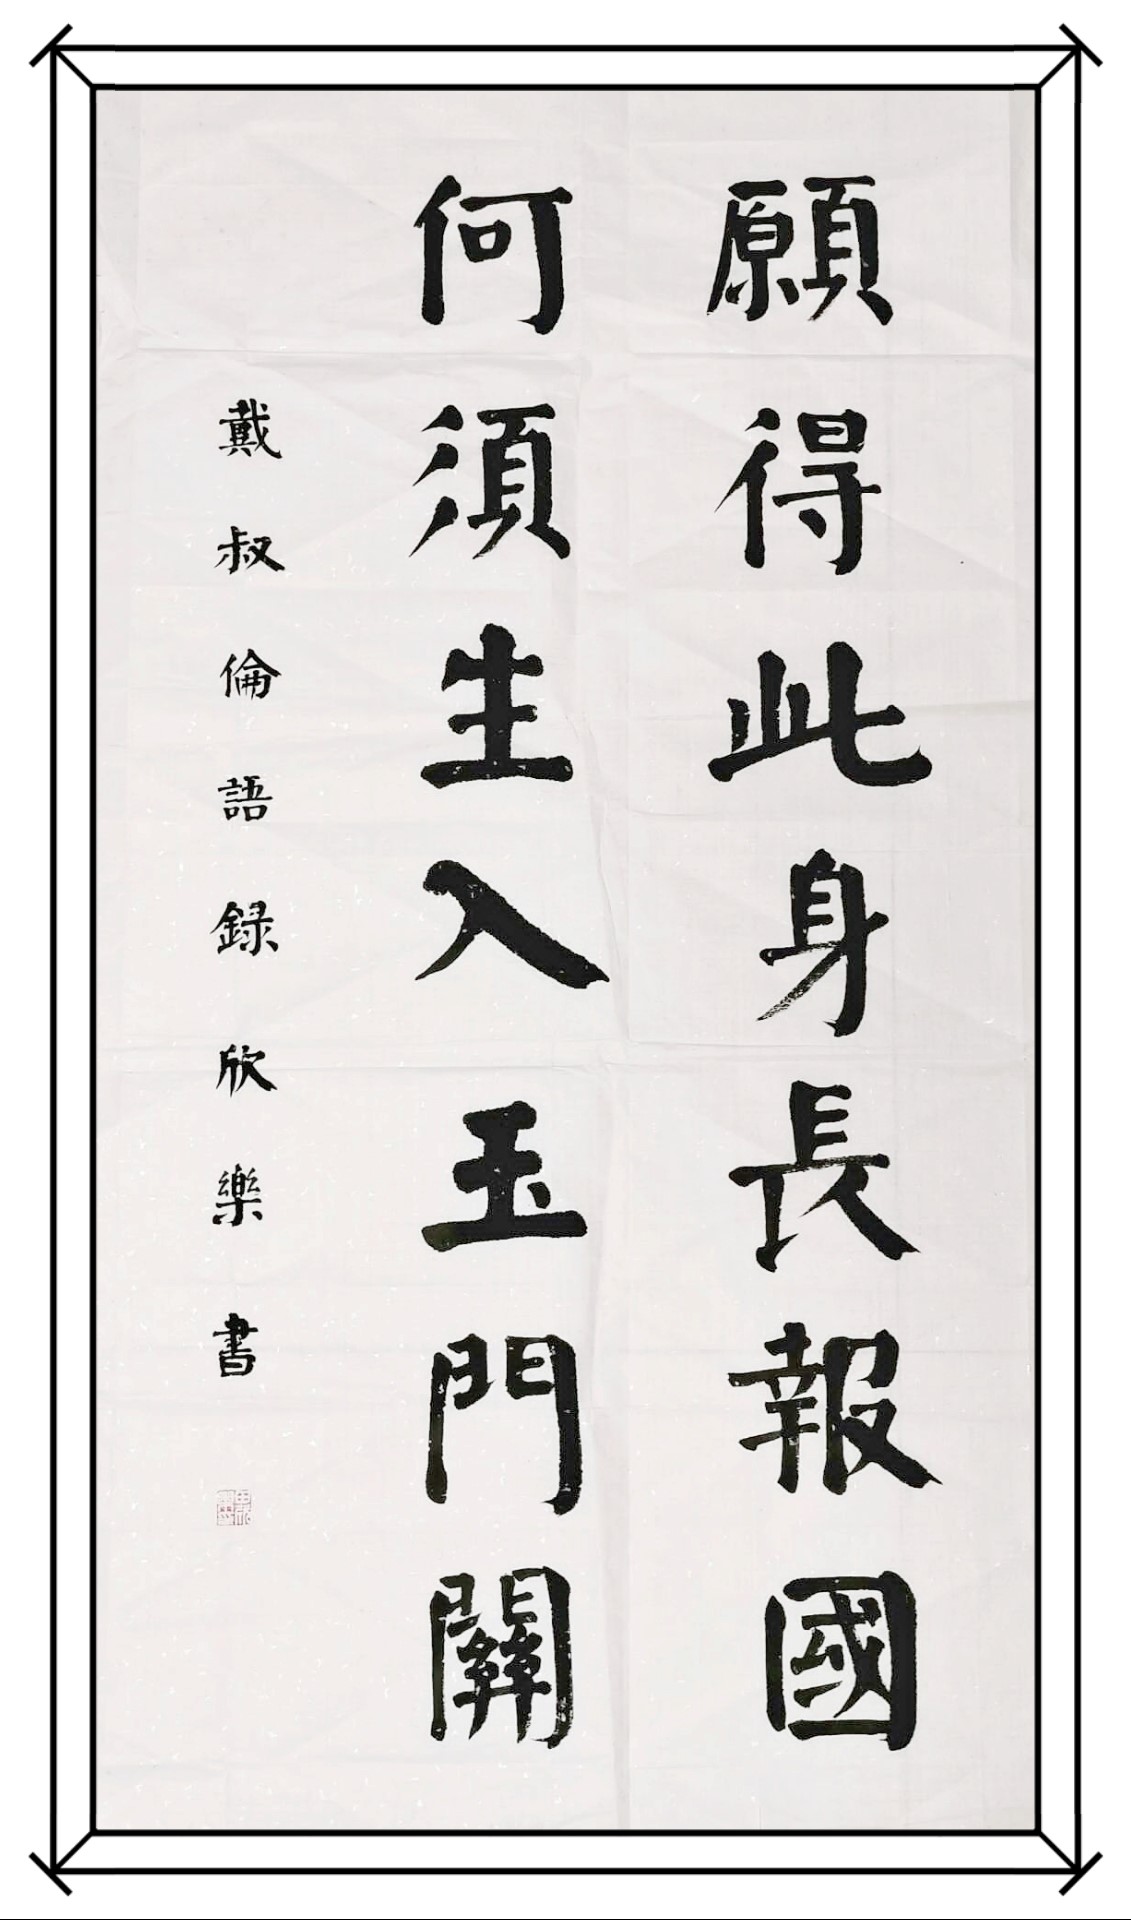 願得此身長報國
何須生入玉門關
戴叔倫語錄欣樂書